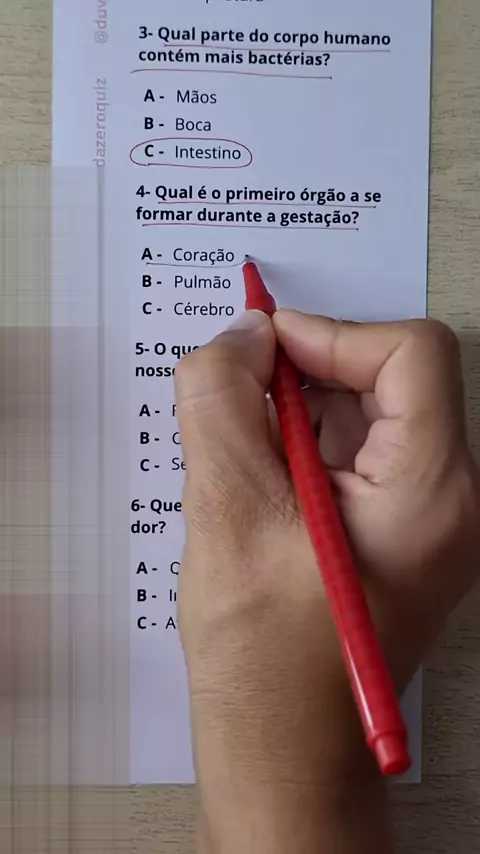 @duv
dazeroquiz
3- Qual parte do corpo humano
contém mais bactérias?
A - Mãos
B - Boca
C - Intestino
4- Qual é o primeiro órgão a se
formar durante a gestação?
A - Coração
B - Pulmão
C - Cérebro
5- O
A -
B -
C -
6-
dor?
A -
B -
C -